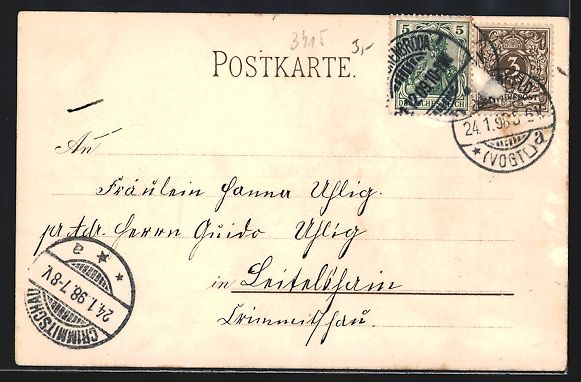 3415 3,-
POSTKARTE.
5 5
DEUTSCHES REICH
3
24.1.98
(VOGTL)
An
Fräulein Hanna Uhlig.
pr Adr. Herrn Guido Uhlig
in Leitelshain
Crimmitschau.
CRIMMITSCHAU
24.1.98.7-8V.
a